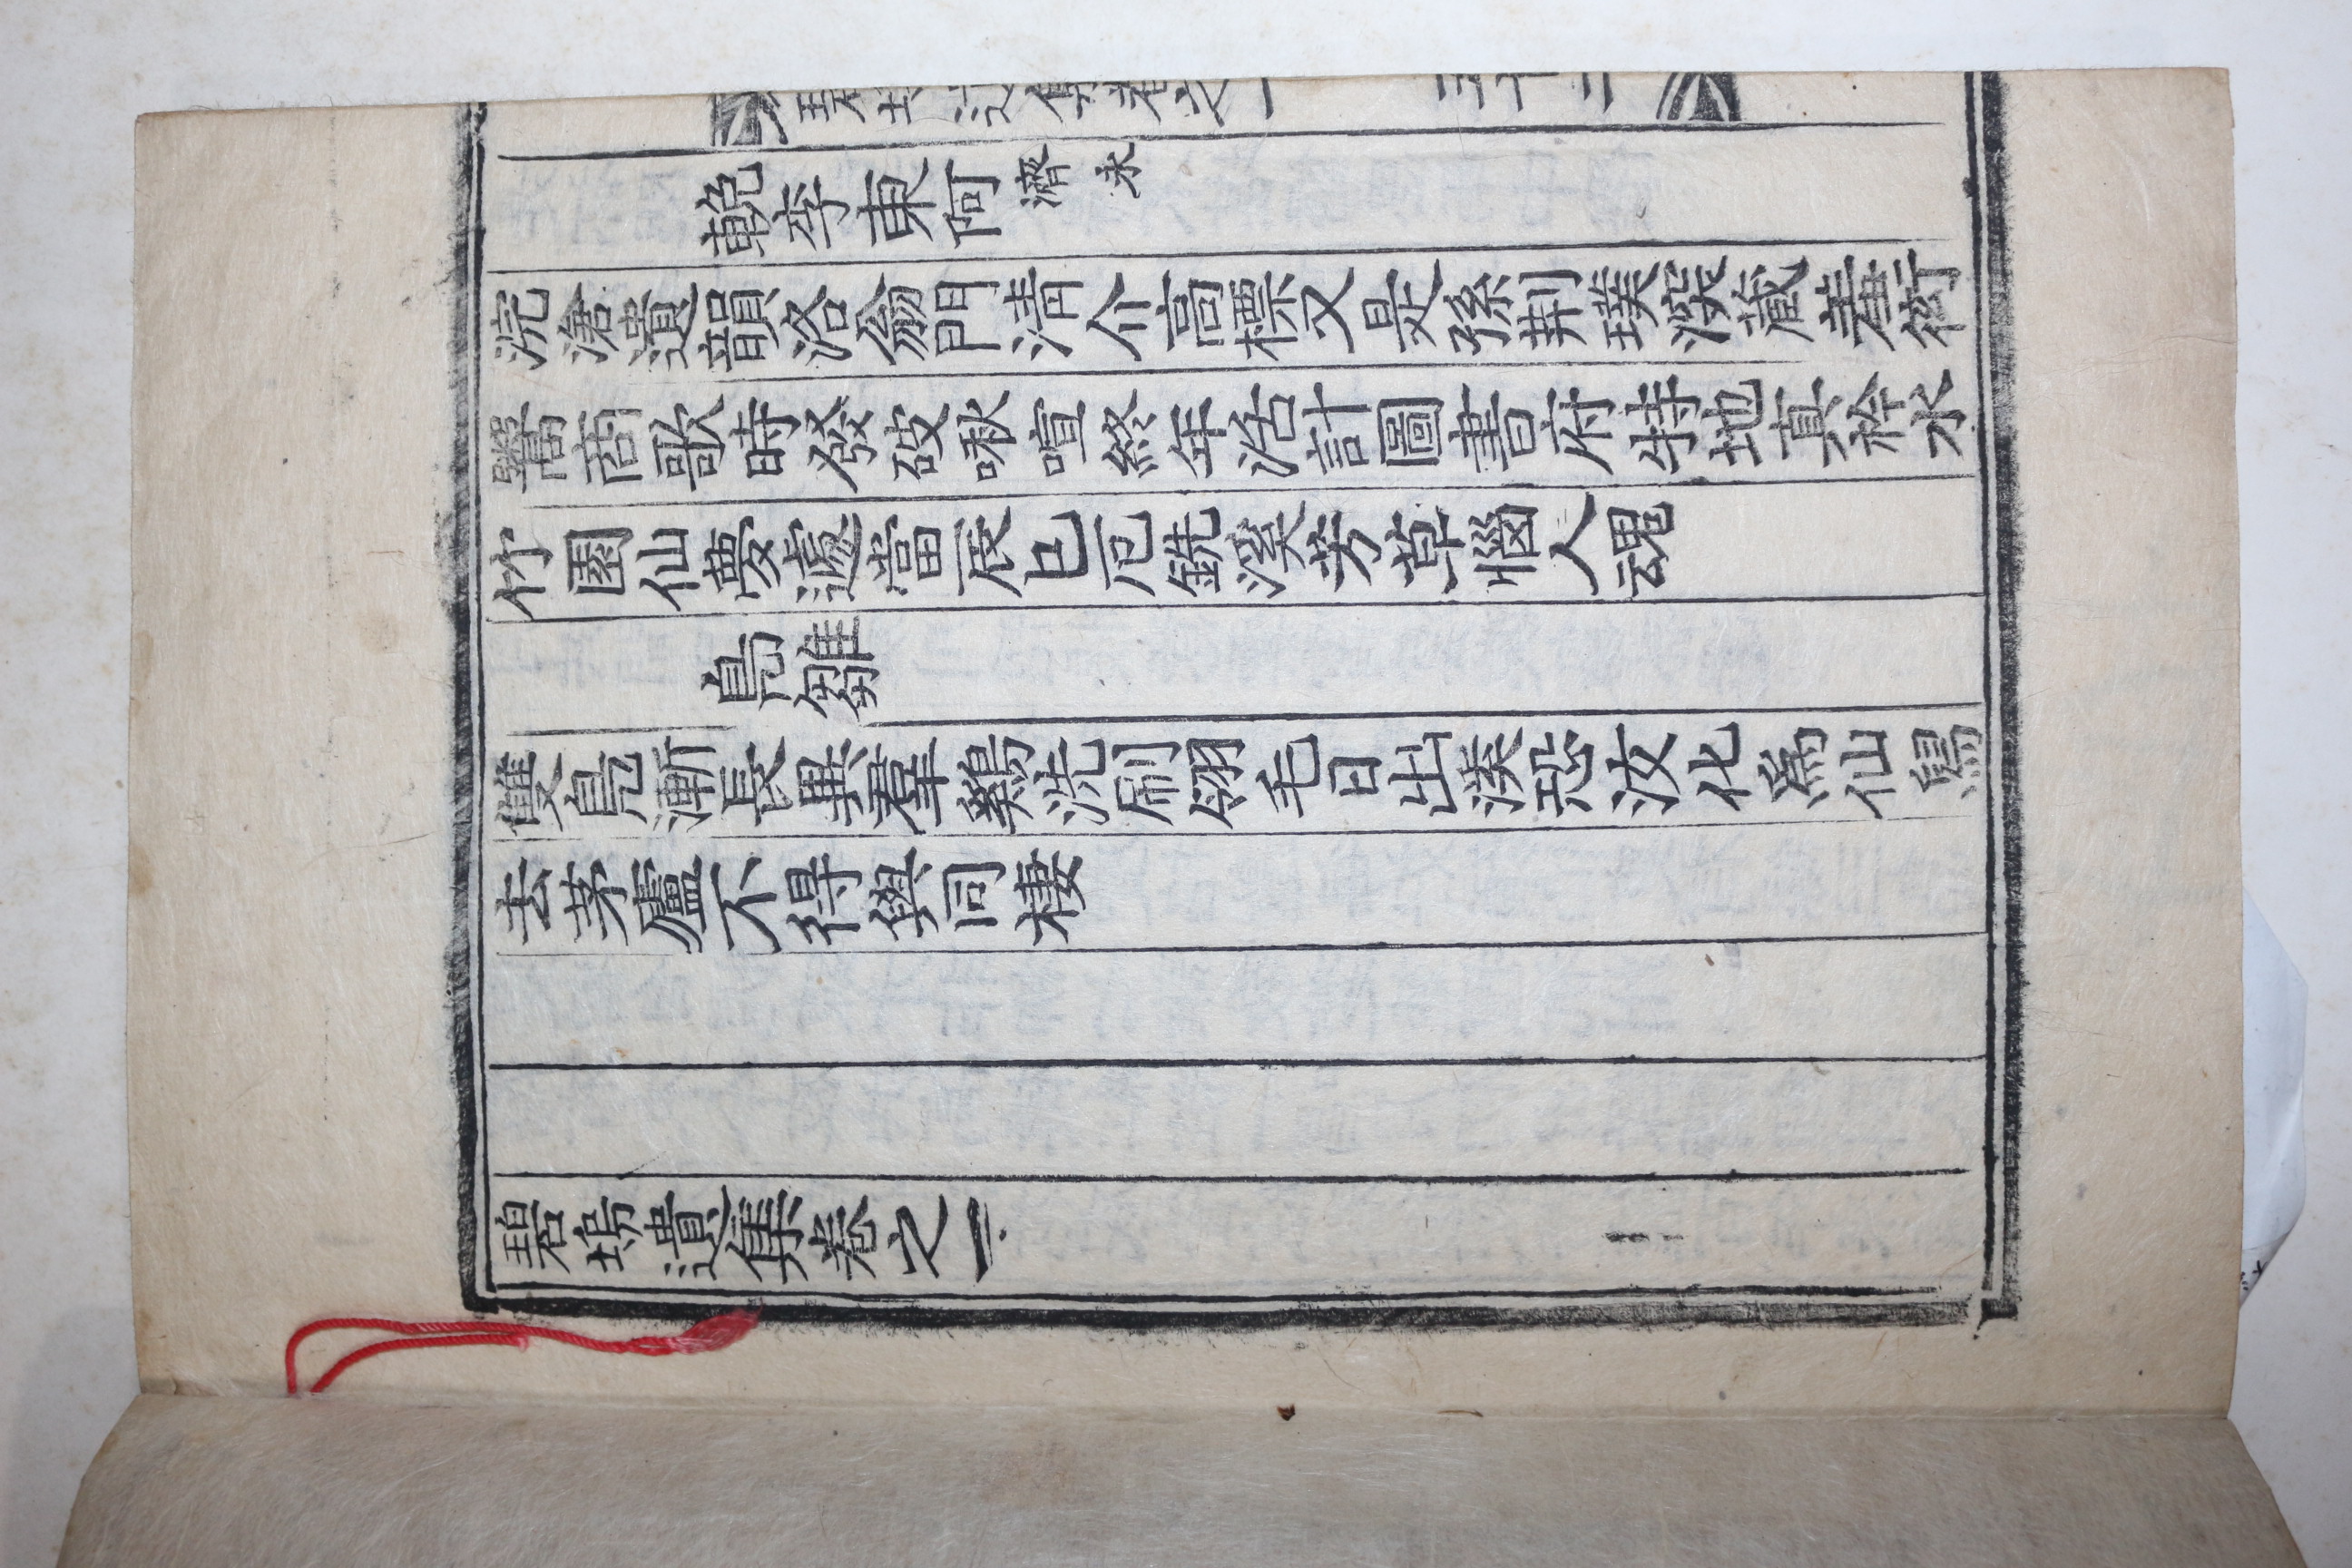 碧塢遺集卷之一
輓李東阿 濟永
浣滄遺韻洛翁門清介高標又是孫荆璞深蔵羞衒
鬻商歌時發破啾喧終年活計圖書府特地真衿水
竹園仙夢遽當辰巳厄銑溪芳草惱人魂
鳧雛
雙鳧漸長異羣鷄洗刷翎毛日出溪恐汝化爲仙舃
去茅廬不得與同棲
碧塢遺集卷之一